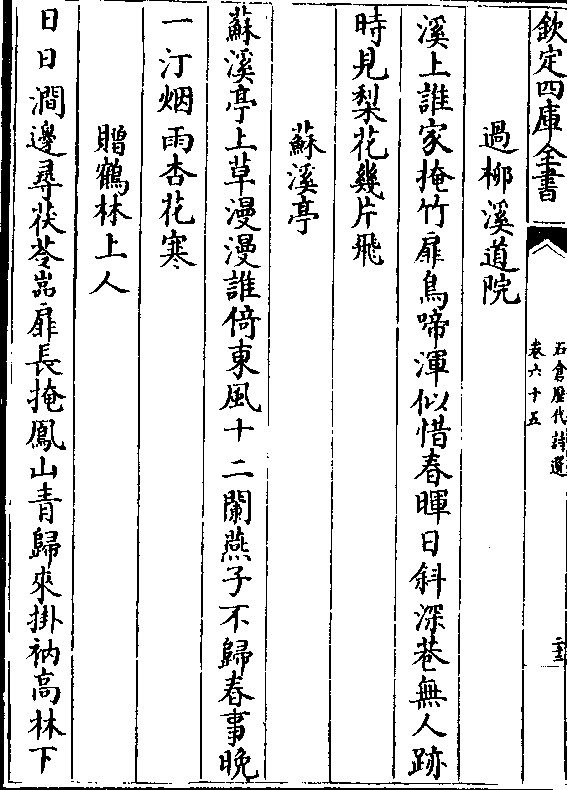 欽定四庫全書
石倉歷代詩選
卷六十五
過柳溪道院
溪上誰家掩竹扉鳥啼渾似惜春暉日斜深巷無人跡
時見梨花幾片飛
蘇溪亭
蘇溪亭上草漫漫誰倚東風十二闌燕子不歸春事晚
一汀烟雨杏花寒
贈鶴林上人
日日澗邊尋茯苓岩扉長掩鳳山青歸來掛衲高林下